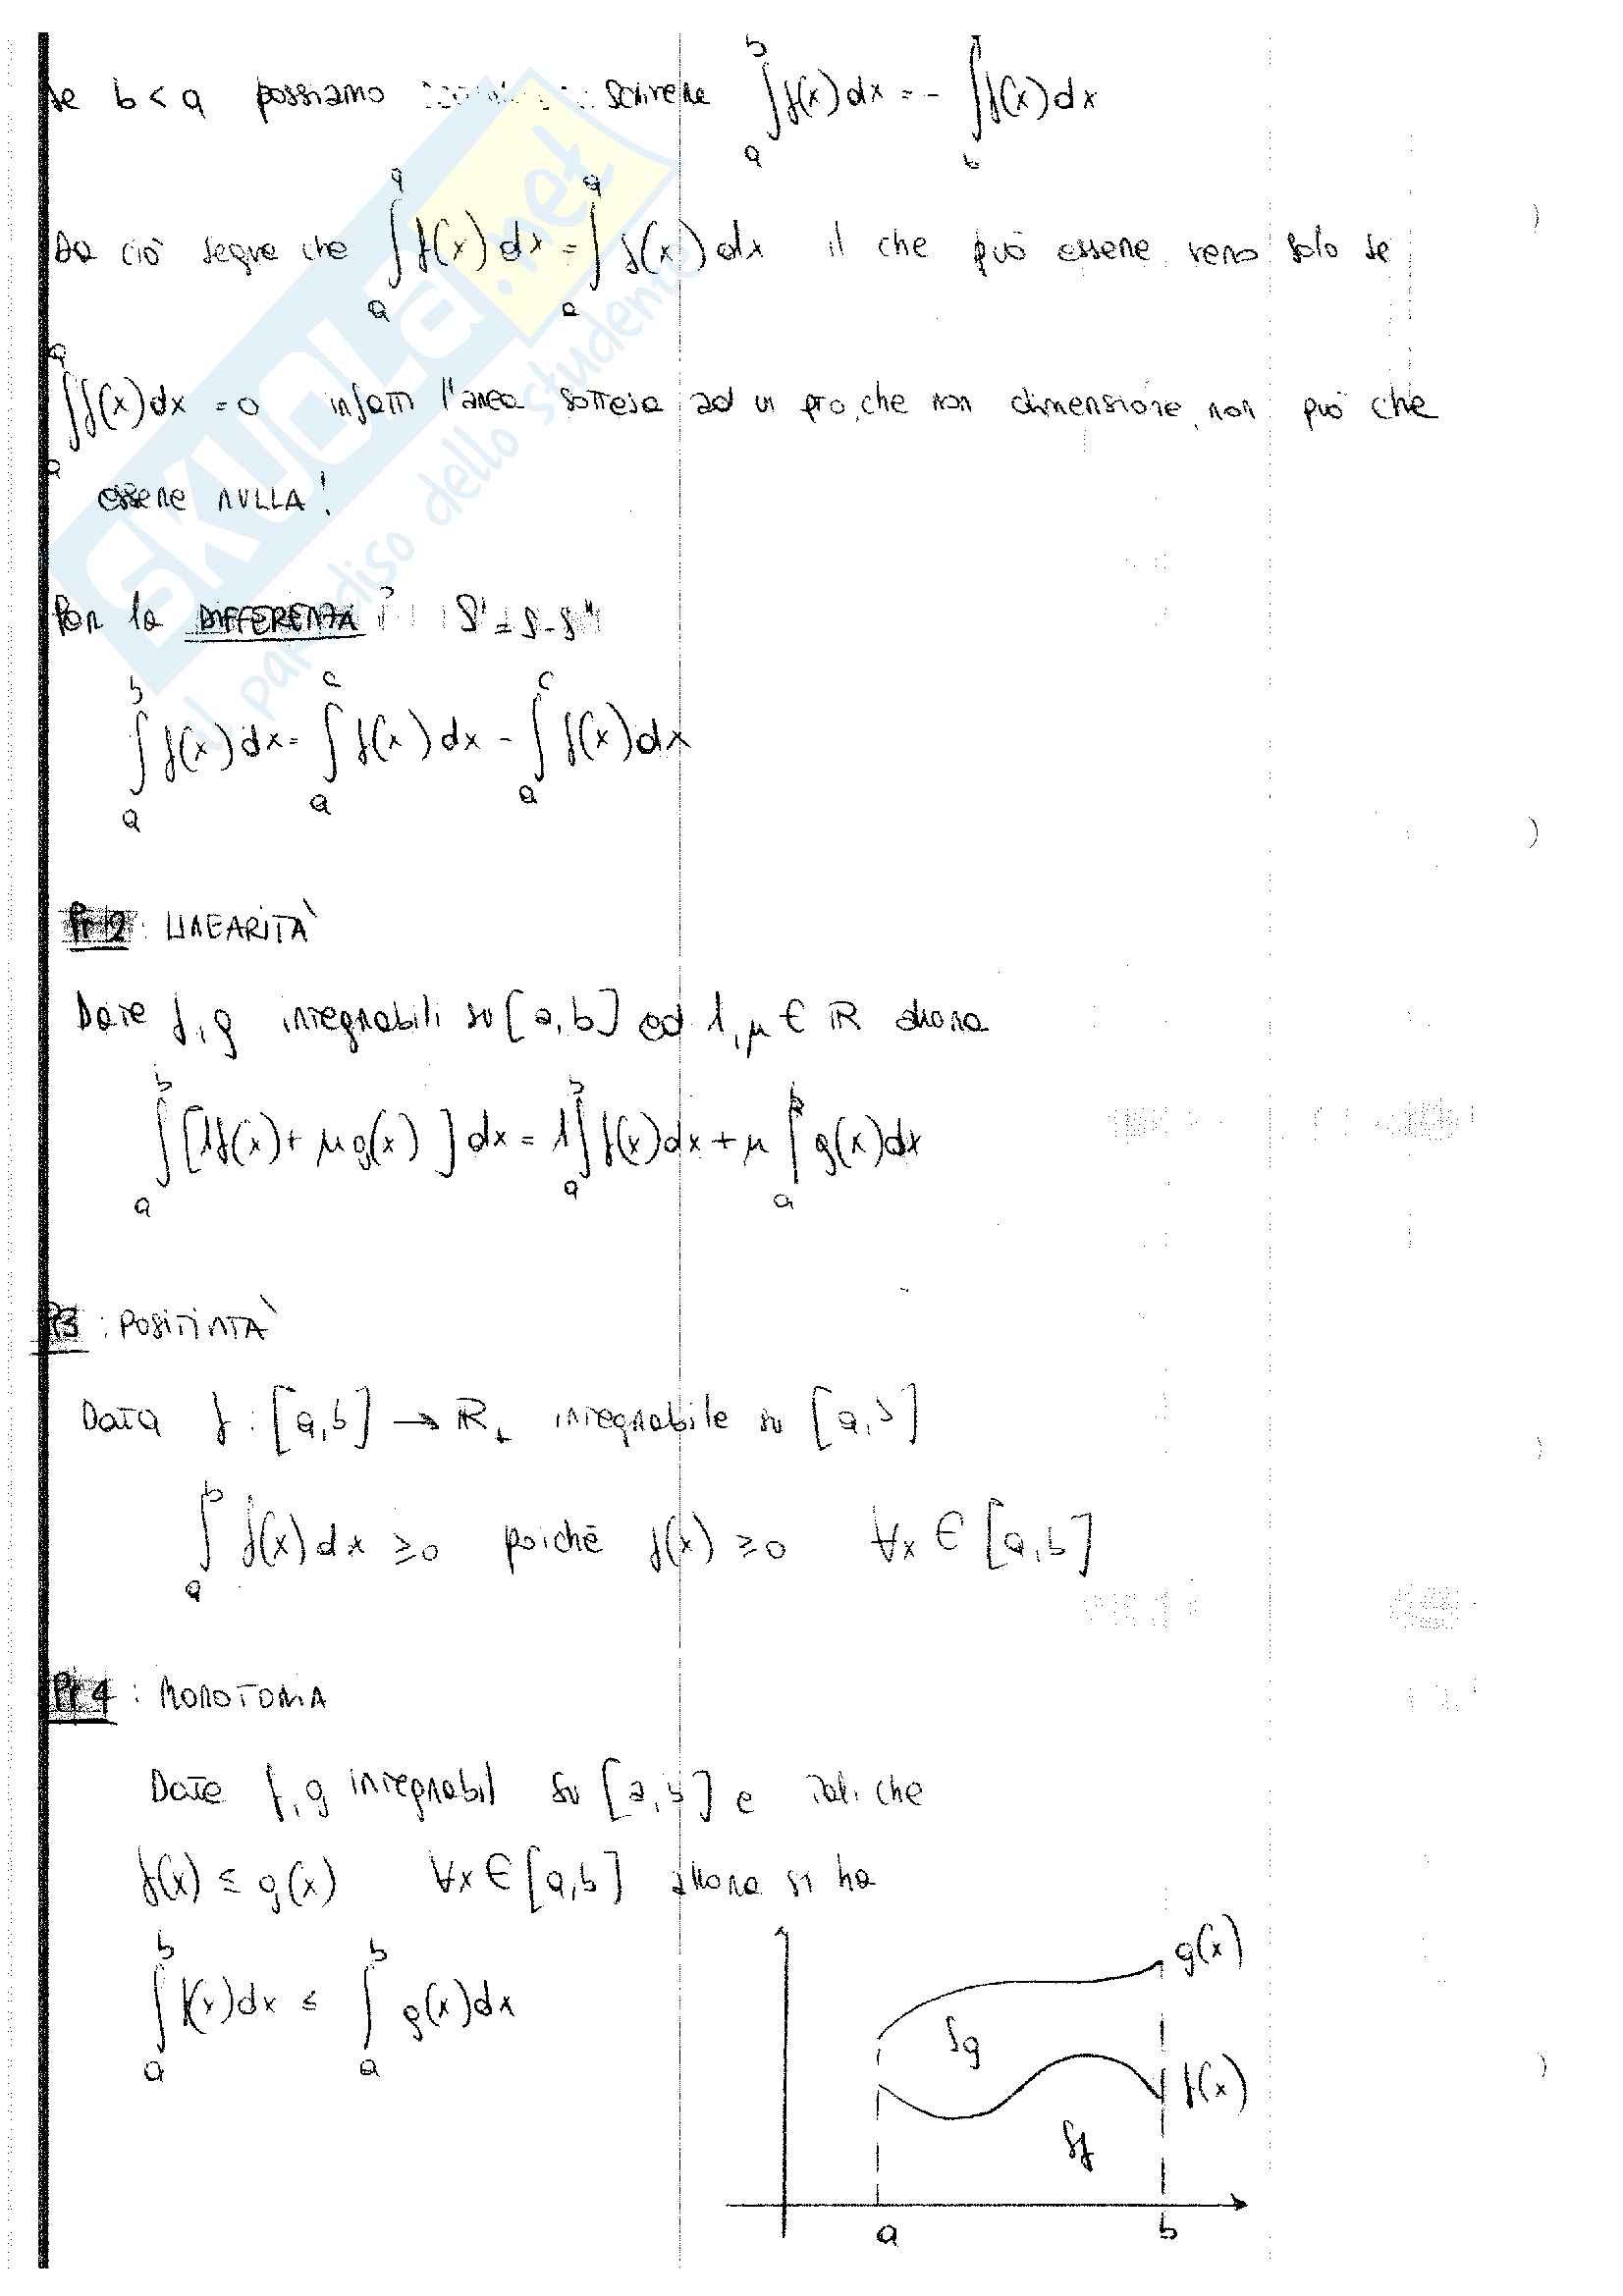 Se b < a possiamo scrivere ∫_a^b f(x)dx = - ∫_b f(x)dx
Da ciò segue che ∫_a^a f(x)dx = ∫_a^a f(x)dx il che può essere vero solo se
∫_a^a f(x)dx = 0 infatti l'area sottesa ad un pto, che non dimensione, non può che
essere NULLA!
Per la DIFFERENZA S' = S - S"
∫_a^b f(x)dx = ∫_a^c f(x)dx - ∫_a^c f(x)dx
Pr 2 : LINEARITÀ
Date f, g integrabili su [a, b] ed λ, μ ∈ ℝ allora
∫_a^b [λf(x) + μg(x)] dx = λ∫_a^b f(x)dx + μ ∫_a^b g(x)dx
P3 : POSITIVITÀ
Data f : [a, b] → ℝ+ integrabile su [a, b]
∫_a^b f(x)dx ≥ 0 poichè f(x) ≥ 0 ∀x ∈ [a, b]
Pr 4 : MONOTONIA
Date f, g integrabil su [a, b] e tali che
f(x) ≤ g(x) ∀x ∈ [a, b] allora si ha
∫_a^b f(x)dx ≤ ∫_a^b g(x)dx
g(x)
Sg
f(x)
Sf
a b
SKUOLA.net
il paradiso dello studente